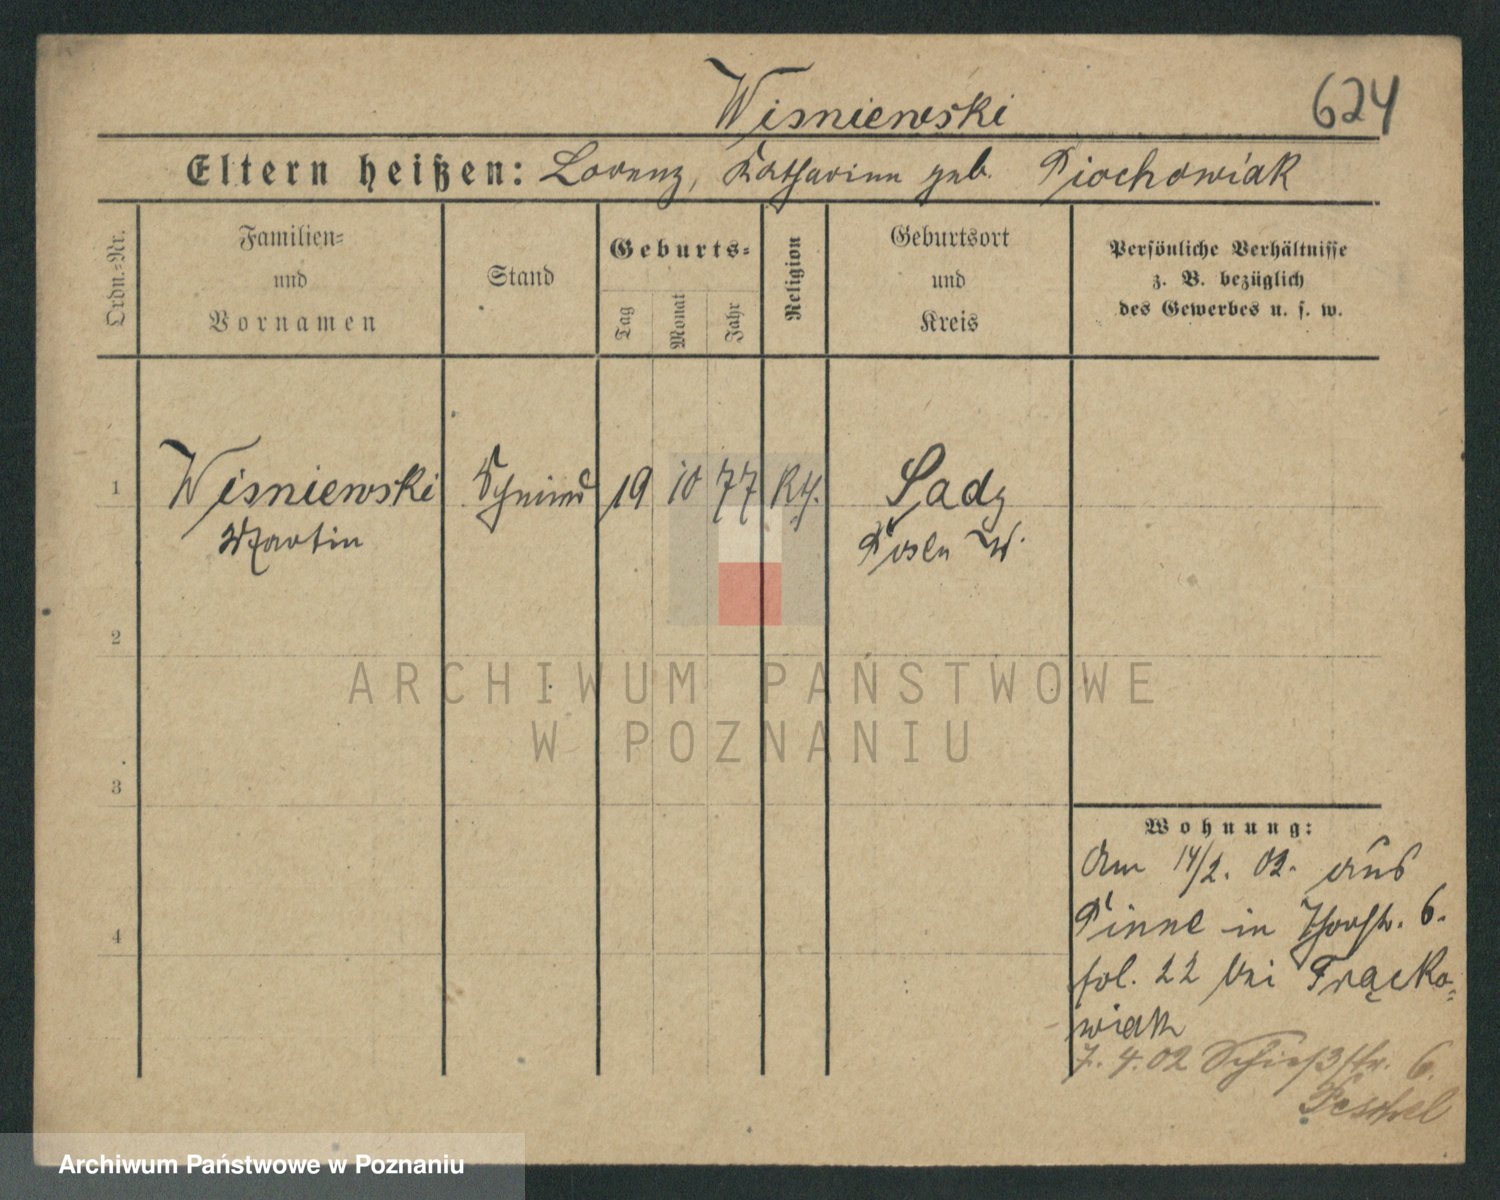 Wisniewski 624
Eltern heißen: Lorenz, Katharina geb. Piochowiak
Ordn.-Nr.
Familien- und Vornamen
Stand
Geburts-
Tag Monat Jahr
Religion
Geburtsort und Kreis
Persönliche Verhältnisse
z. B. bezüglich
des Gewerbes u. s. w.
1 Wisniewski Schmied 19 10 77 kth. Sady
Martin Posen W.
2
ARCHIWUM PAŃSTWOWE
W POZNANIU
3
Wohnung:
Am 14/2. 02. aus
Pinne in Thorstr. 6.
4
fol. 22 bei Frącko-
wiak
7. 4. 02 Schießstr. 6.
Archiwum Państwowe w Poznaniu